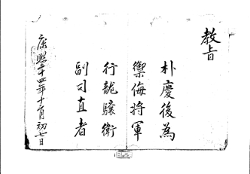 教旨
朴慶後為
禦侮將軍
行龍驤衛
副司直者
康熙十四年十月初七日